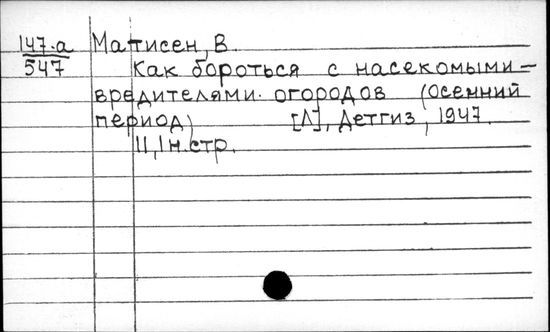 147-а Матисен, В.
547
Как бороться с насекомыми-
вредителями огородов (Осенний
период) [Л], Детгиз, 1947.
11, 1 н. стр.